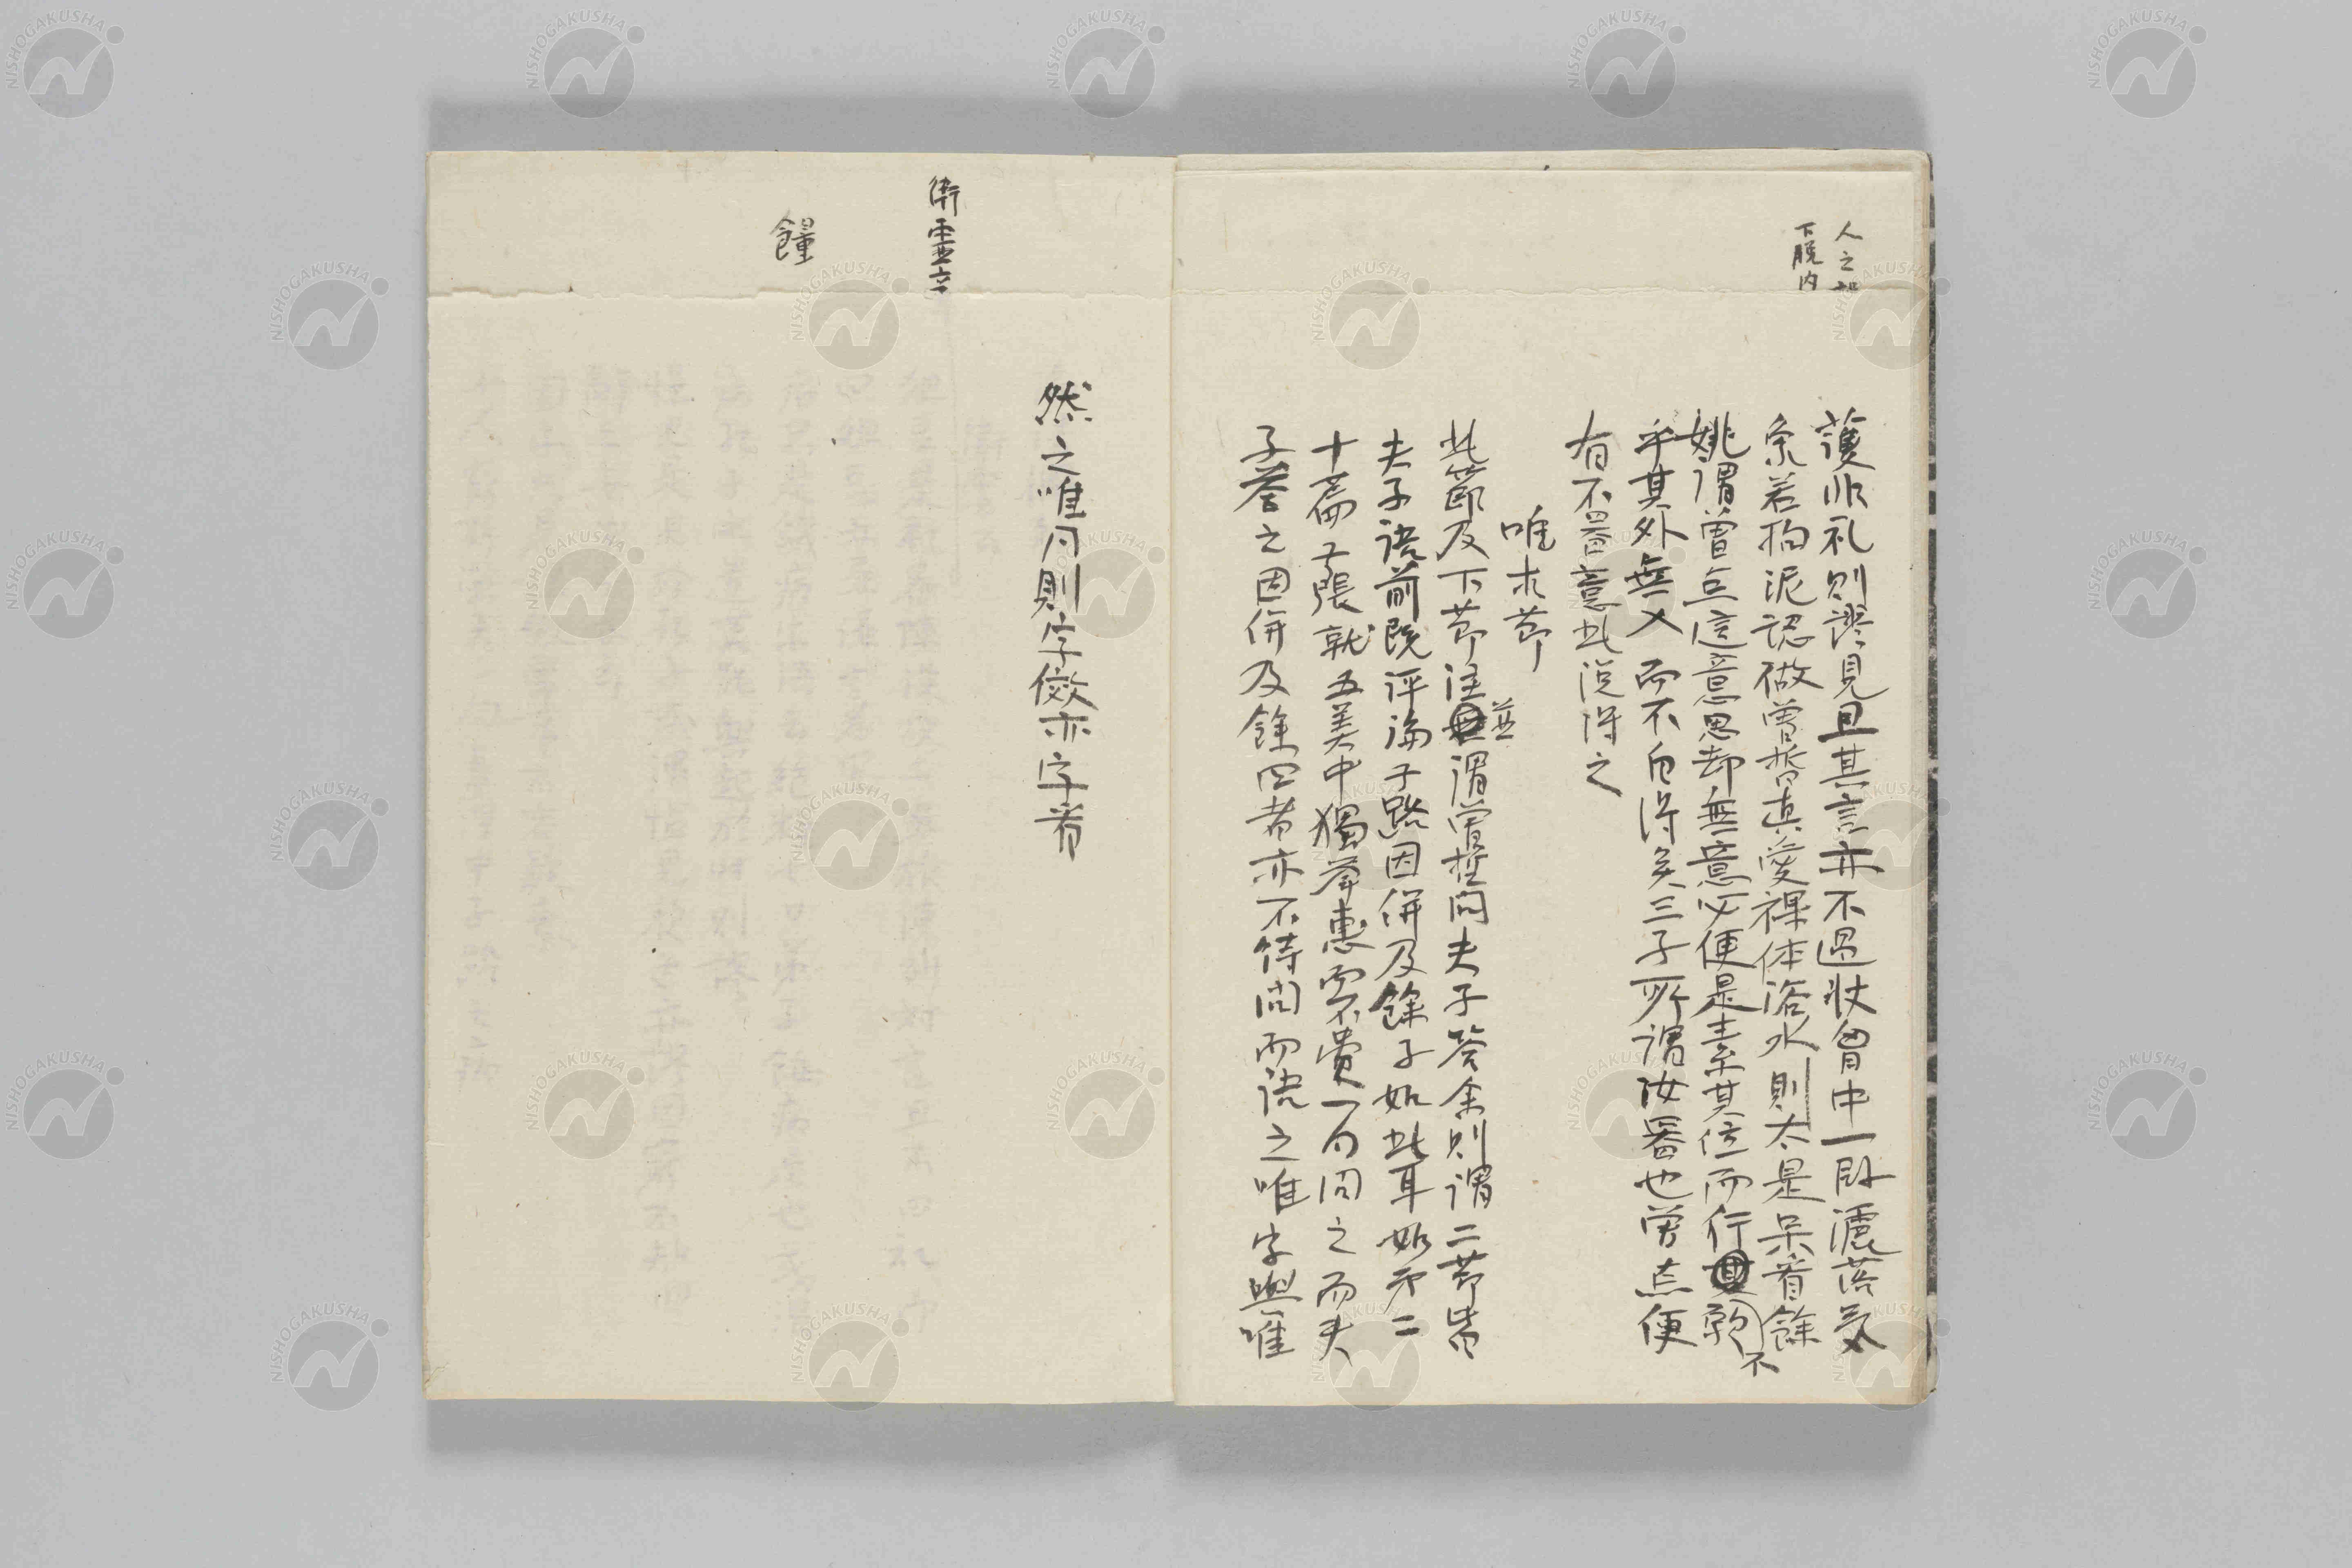 人之
下脱内
護非礼則謬見且其言亦不過状曾中一段灑落気
条若拘泥認做曾晳真愛裸体浴水則太是呆看餘
姚謂曾点這意思却無意必便是素其位而行不
乎其外無入而不自得矣三子所謂汝器也曽点便
有不器意此説得之
唯求節
此節及下節注並謂曽晳問夫子答余則謂二節皆
夫子語前既評論子路因併及餘子如此耳如第二
十篇子張就五美中獨挙惠而不費一句問之而夫
子答之因併及餘四者亦不待問而語之唯字與唯
然之唯同則字倣亦字看
衛霊
饐
NISHOGAKUSHA